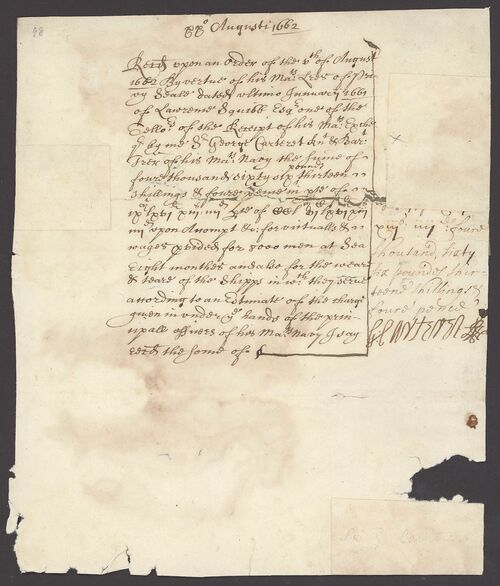 98
Augusti 1662
Recd upon an order of the vth of August
1662 By vertue of his Mats Lres of Pri
vy Seale dated ultimo January 1661
of Lawrence Squibb Esqr one of the
Tellors of the Receipt of his Mats Exche
qr by me Sr George Carteret Knt & Bart
Trer of his Mats Navy the sume of
foure thousand sixty six pounds thirteen
shillings & foure pence in pte of
iiii upon Accompt &c for victualls &
wages p̱vided for 8000 men at Sea
Eight monthes and alsoe for the weare
& teare of the Shipps in wch they serve
according to an Estimate of the charge
given in under ye hands of the prin
cipall officers of his Mats Navy I say
recd the some of
xiiis iiiid foure
thousand sixty
six poundes thir
teene shillings &
foure pence
GCarteret